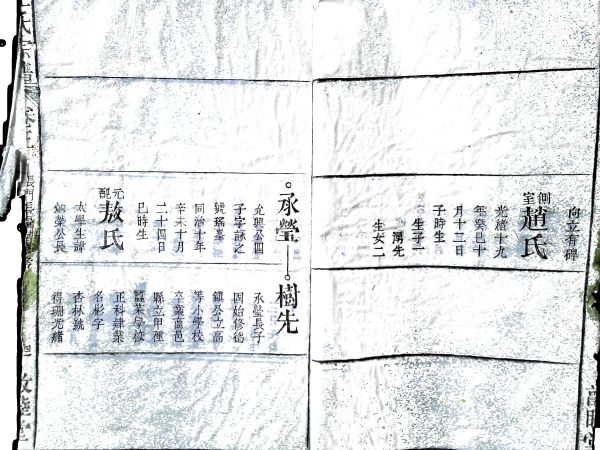 向立有碑
側室
趙氏
光緒十九
年癸巳十
月十二日
子時生
生子一
湧先
生女二
承瑩
樹先
允興公四
子字詠之
號稱峯
同治十年
辛未十月
二十四日
巳時生
元配
敖氏
太學生諱
榮公長
承瑩長子
國始修德
鎮公立高
等小學校
卒業萬邑
縣立甲種
蠶業學校
正科肄業
名彬字
杏林號
得珊光緒